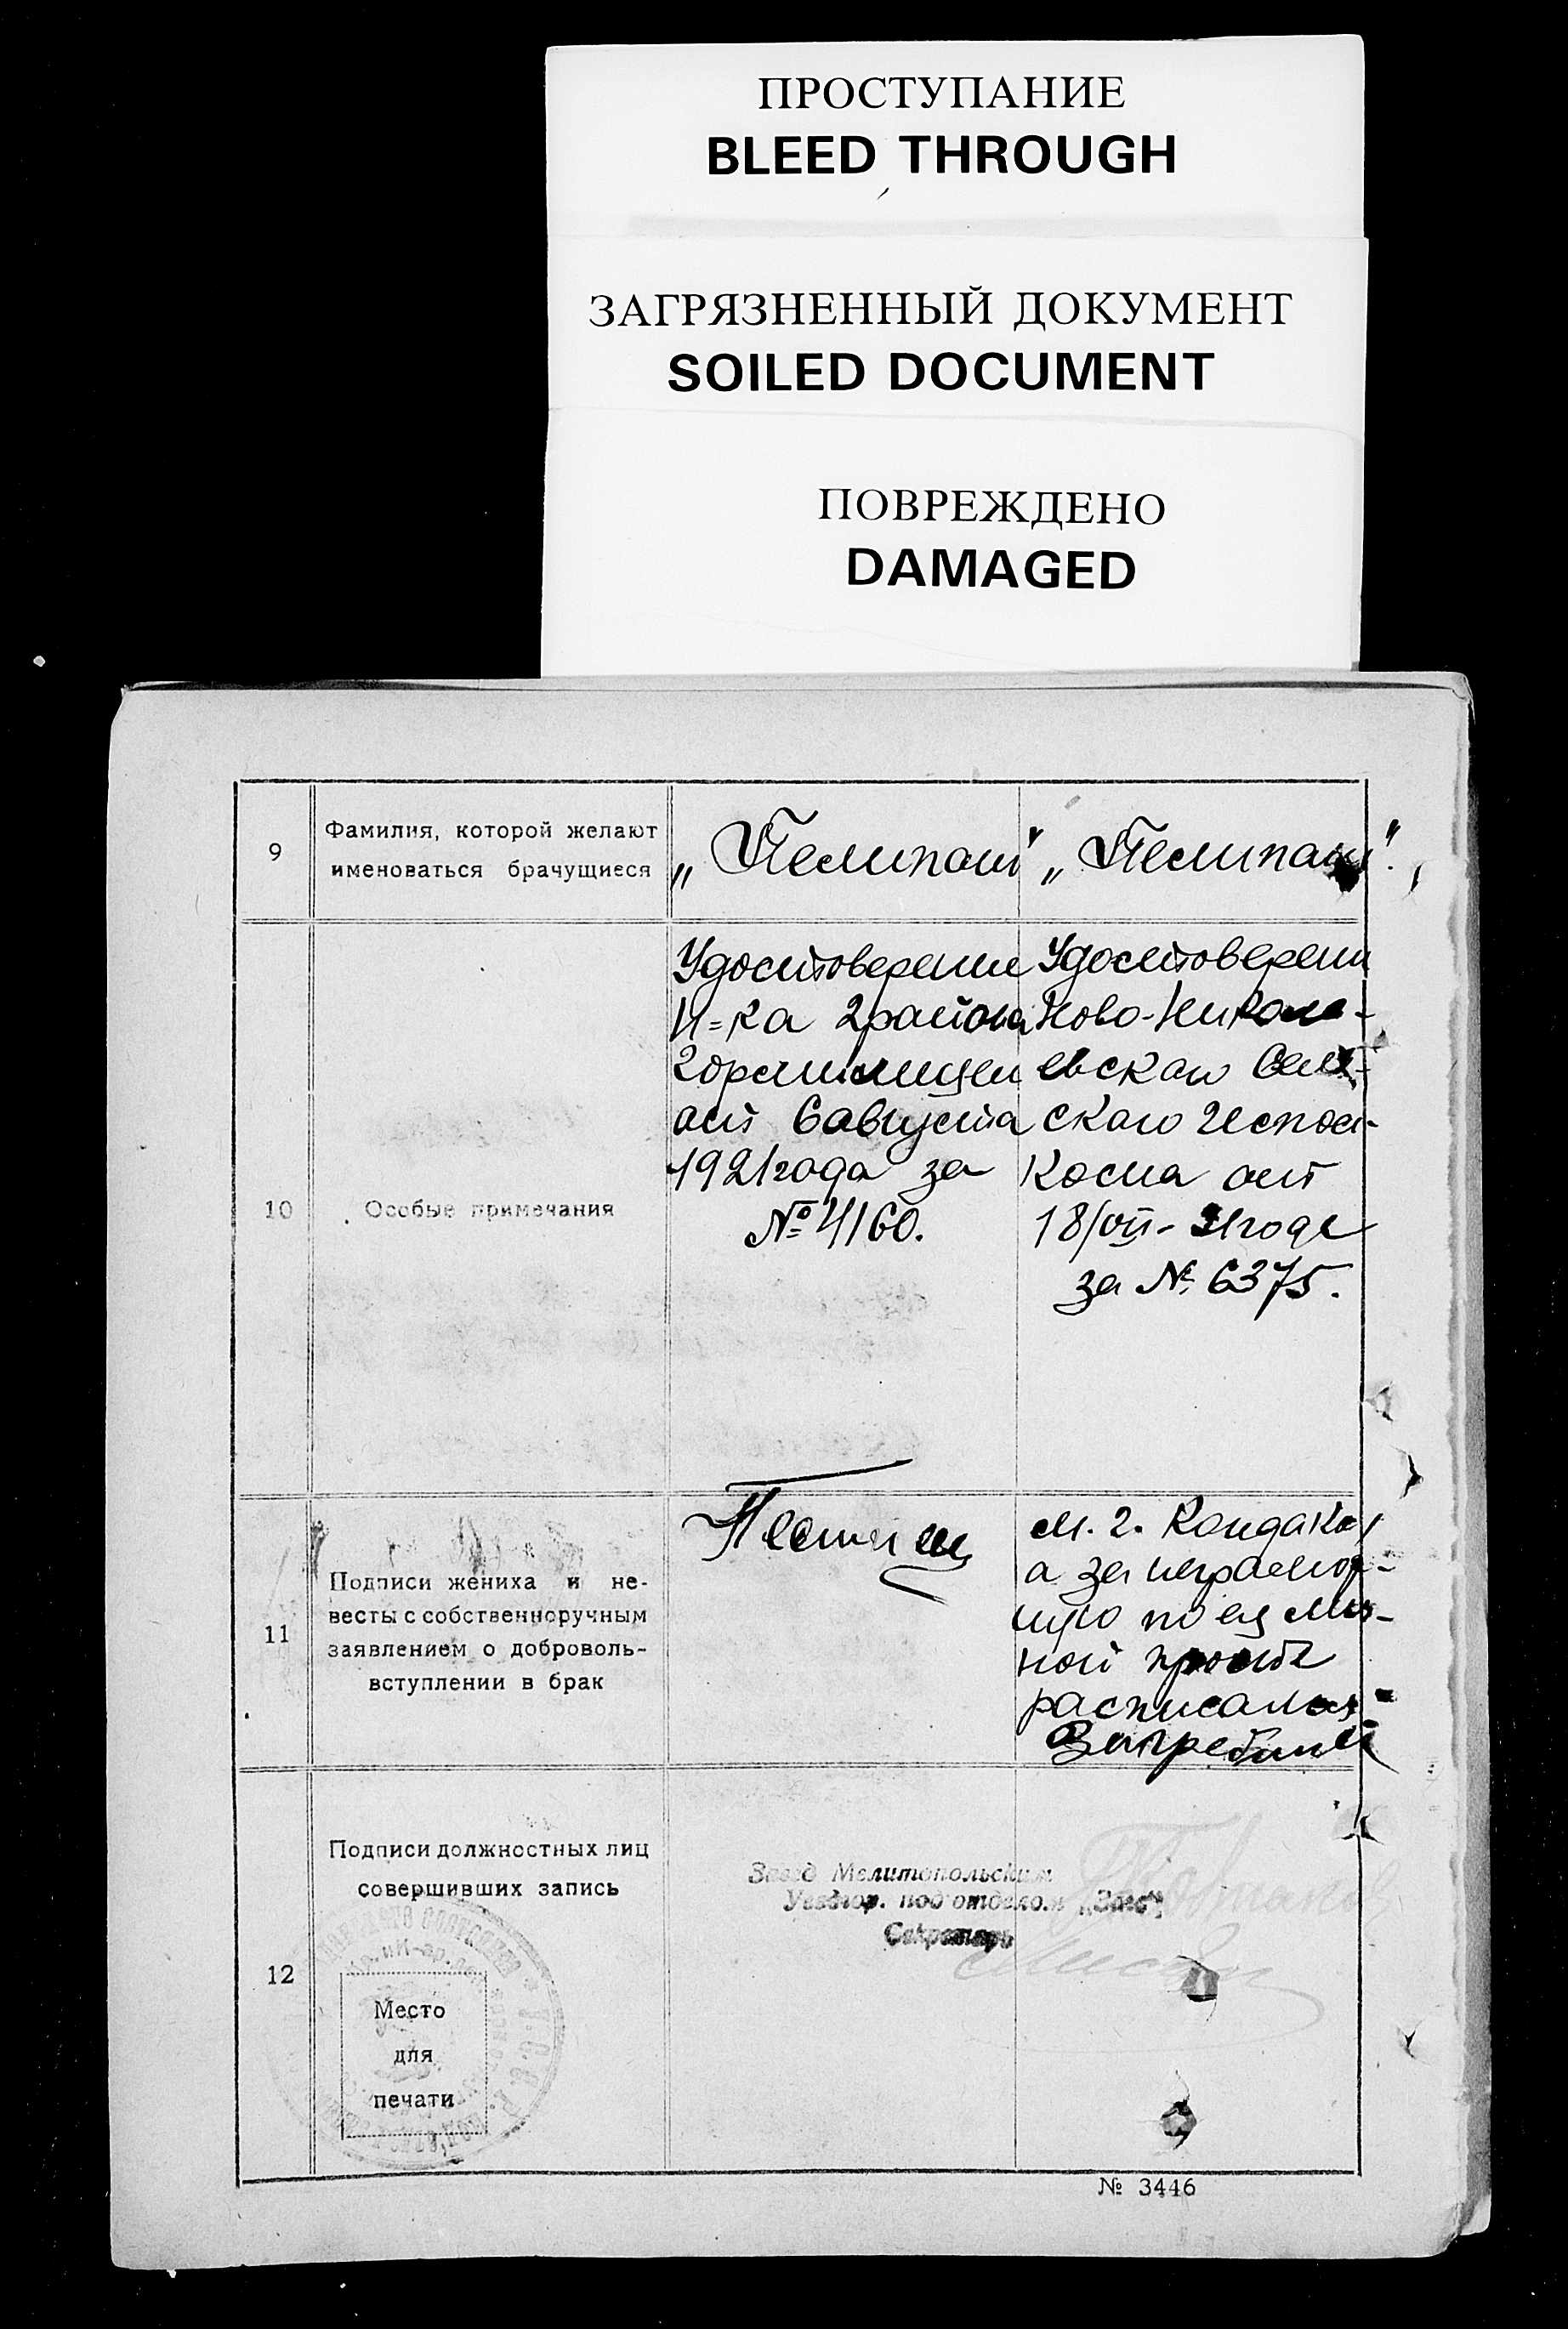 ПРОСТУПАНИЕ
BLEED THROUGH
ЗАГРЯЗНЕННЫЙ ДОКУМЕНТ
SOILED DOCUMENT
ПОВРЕЖДЕНО
DAMAGED
9
Фамилия, которой желают
именоваться брачущиеся
10
Особые примечания
Удостоверение
2 района
от 6 августа
1921 года за
№ 4160.
Удостоверени
Ново-Никола-
евскаго Сель-
скаго Испол-
кома от
18/VII- 21 года
за № 6375.
11
Подписи жениха и не-
весты с собственноручным
заявлением о доброволь-
вступлении в брак
М. Г.
а за неграмот-
ную по ея лич-
ной прозбе
расписался
12
Подписи должностных лиц
совершивших запись
Место
для
печати
Завед Мелитопольским
Уездгор. подотделом „Загс“
Секретарь
№ 3446